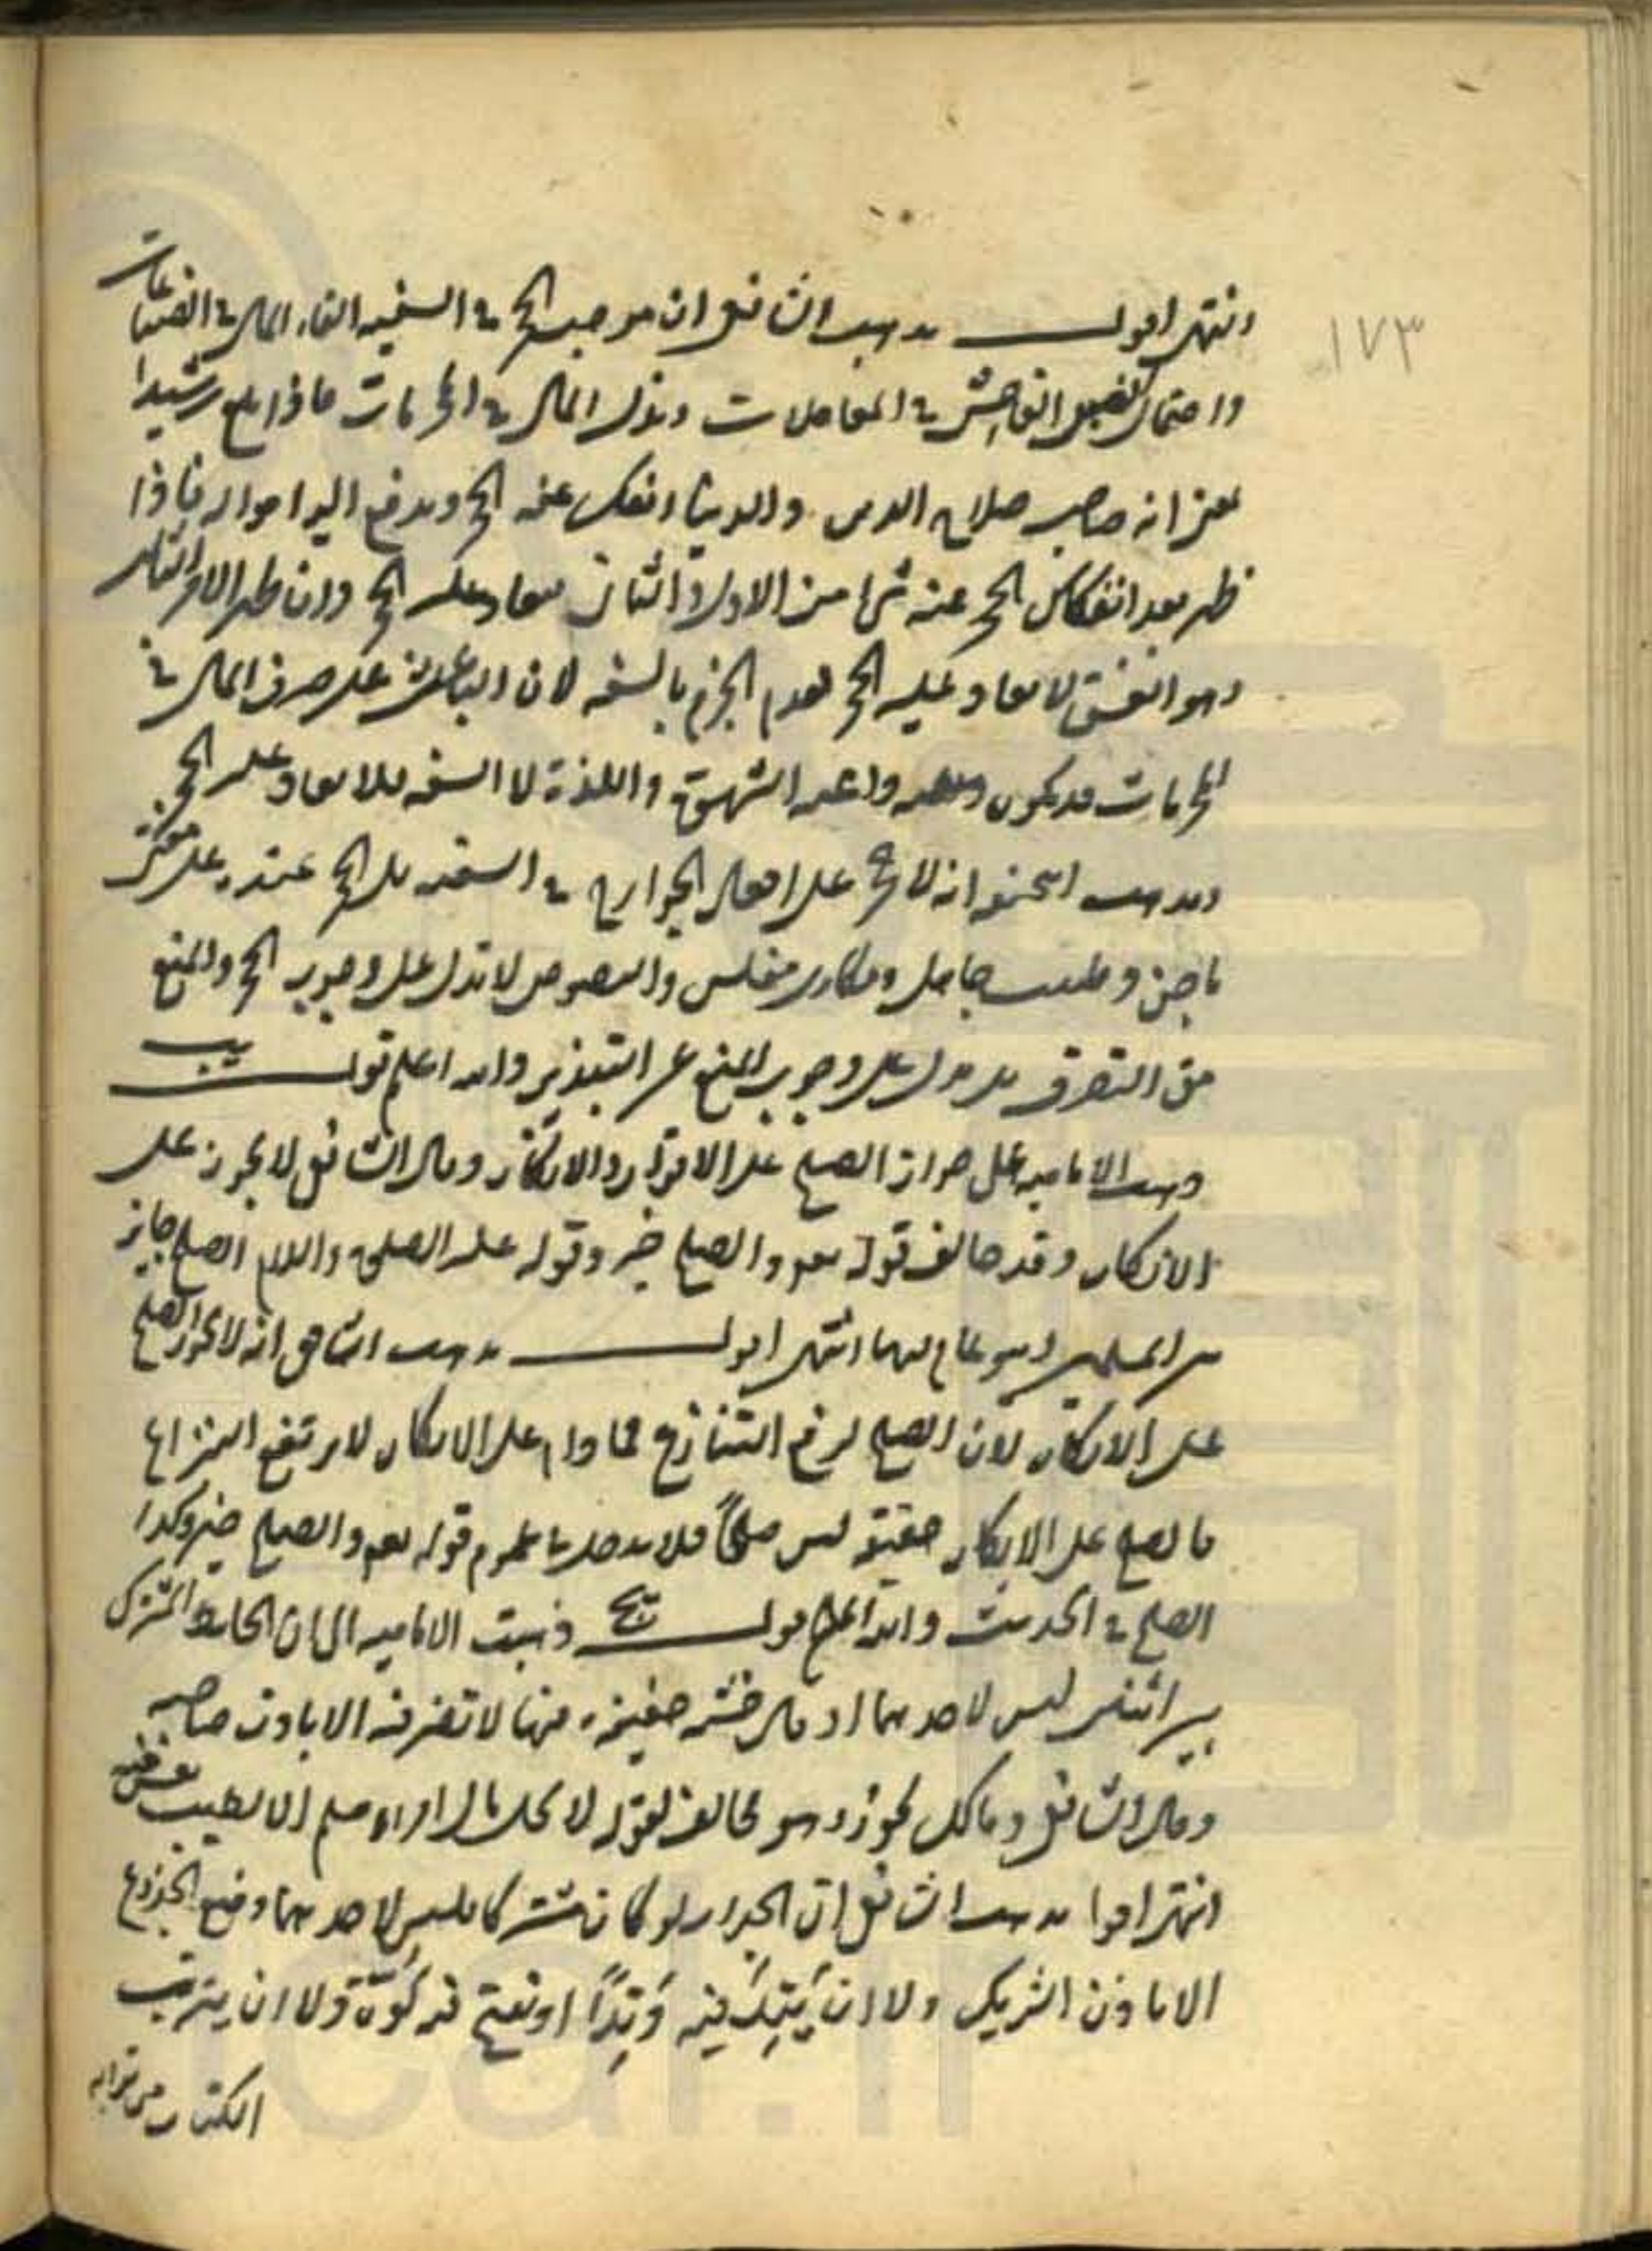 ١٧٣
انتهى اقول مذهب الشافعي ان موجب الحجر في السفيه القاء المال في الضياعات
واحتمال الغبن الفاحش في المعاملات وبذل المال في المحرمات فاذا بلغ رشيدا
بمعنى انه صاحب صلاح الدين والدنيا انفك عنه الحجر ويدفع اليه امواله فاذا
ظهر بعد انفكاك الحجر عنه شيء من الاول والثاني يعاد عليه الحجر وان ظهر الامر الثالث
وهو الفسق لا يعاد عليه الحجر لعدم الجزم بالسفه لان الباعث على صرف المال في
المحرمات قد يكون داعيه الشهوة واللذة لا السفه فلا يعاد عليه الحجر
ومذهب ابي حنيفه انه لا حجر على افعال الجوارح في السفيه بل الحجر عنده على مفتي
ماجن وطبيب جاهل ومكاري مفلس والنصوص لا تدل على وجوب الحجر والمنع
من التصرف بل تدل على وجوب المنع عن التبذير والله اعلم قوله يب
ذهب الاماميه على جواز الصلح على الاقرار والانكار وقال الشافعي لا يجوز على
الانكار وقد خالف قوله تعم والصلح خير وقوله عليه الصلوة والسلام الصلح جايز
بين المسلمين وهو عام فيهما انتهى اقول مذهب الشافعي انه لا يجوز الصلح
على الانكار لان الصلح لرفع التنازع فما دام على الانكار لا يرتفع النزاع
فالصلح على الانكار حقيقة ليس صلحاً فلا يدخل في عموم قوله تعم والصلح خير وكذا
الصلح في الحديث والله اعلم قوله يج ذهبت الاماميه الى ان الحايط المشترك
بين اثنين ليس لاحدهما ادخال خشبة خفيفة فيها لا تضر فيه الا باذن صاحبه
وقال الشافعي ومالك يجوز وهو مخالف لقوله لا يحل مال امرء مسلم الا بطيب نفس منه
انتهى اقول مذهب الشافعي ان الجدار لو كان مشتركا فليس لاحدهما وضع الجذوع
الا باذن الشريك ولا ان يَتِدَ فيه وَتِدًا او يفتح فيه كُوّة ولا ان يترب
الكتاب من ترابه